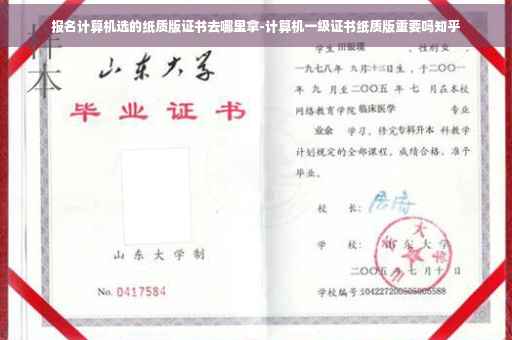 报名计算机选的纸质版证书去哪里拿-计算机一级证书纸质版重要吗知乎
样本
山东大学
毕业证书
山东大学制
No. 0417584
学生
性别女，
一九七八年 九月十二日生，于二〇〇一
年 九 月至二〇〇五 年 七 月在本校
网络教育学院 临床医学 专业
业余 学习，修完专科升本 科教学
计划规定的全部课程，成绩合格，准予
毕业。
校 长：
学 校：山东大学
二〇〇五 年 七 月 十 日
学校编号: